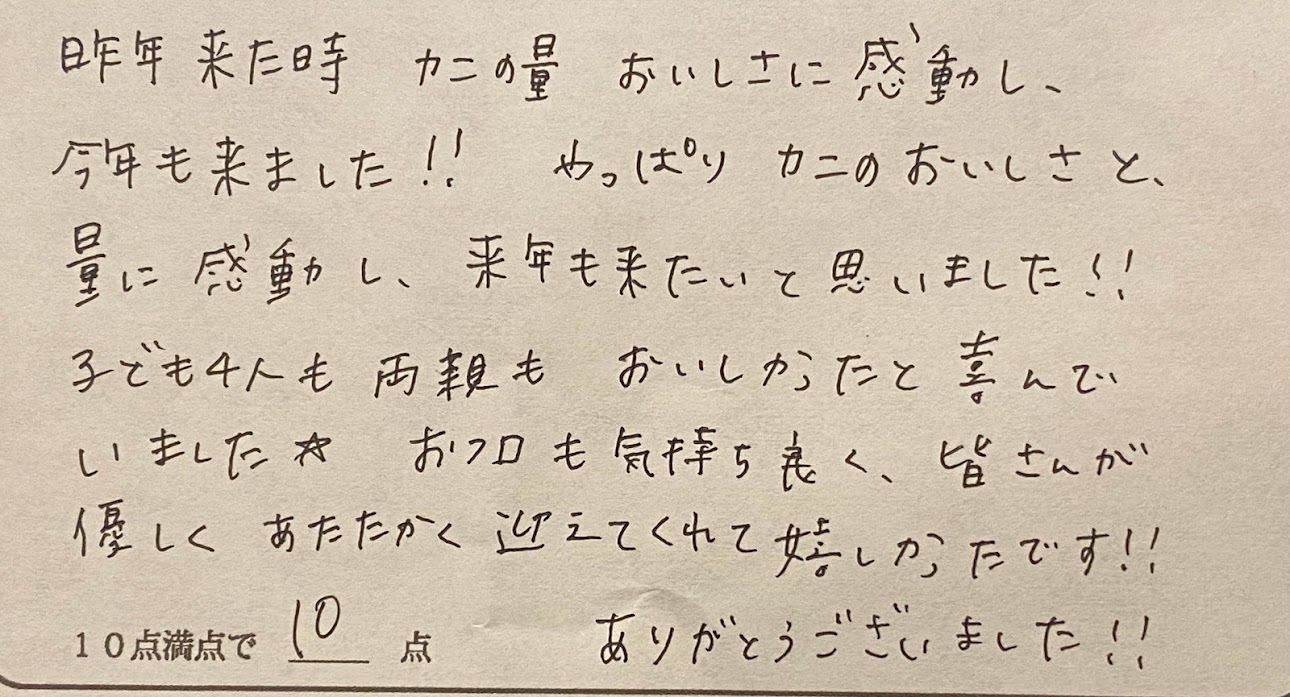 昨年来た時 カニの量 おいしさに感動し、
今年も来ました!! やっぱり カニのおいしさと、
量に感動し、来年も来たいと思いました!!
子ども4人も 両親も おいしかったと喜んで
いました☆ おフロも気持ち良く、皆さんが
優しく あたたかく迎えてくれて嬉しかったです!!
10点満点で 10 点 ありがとうございました!!